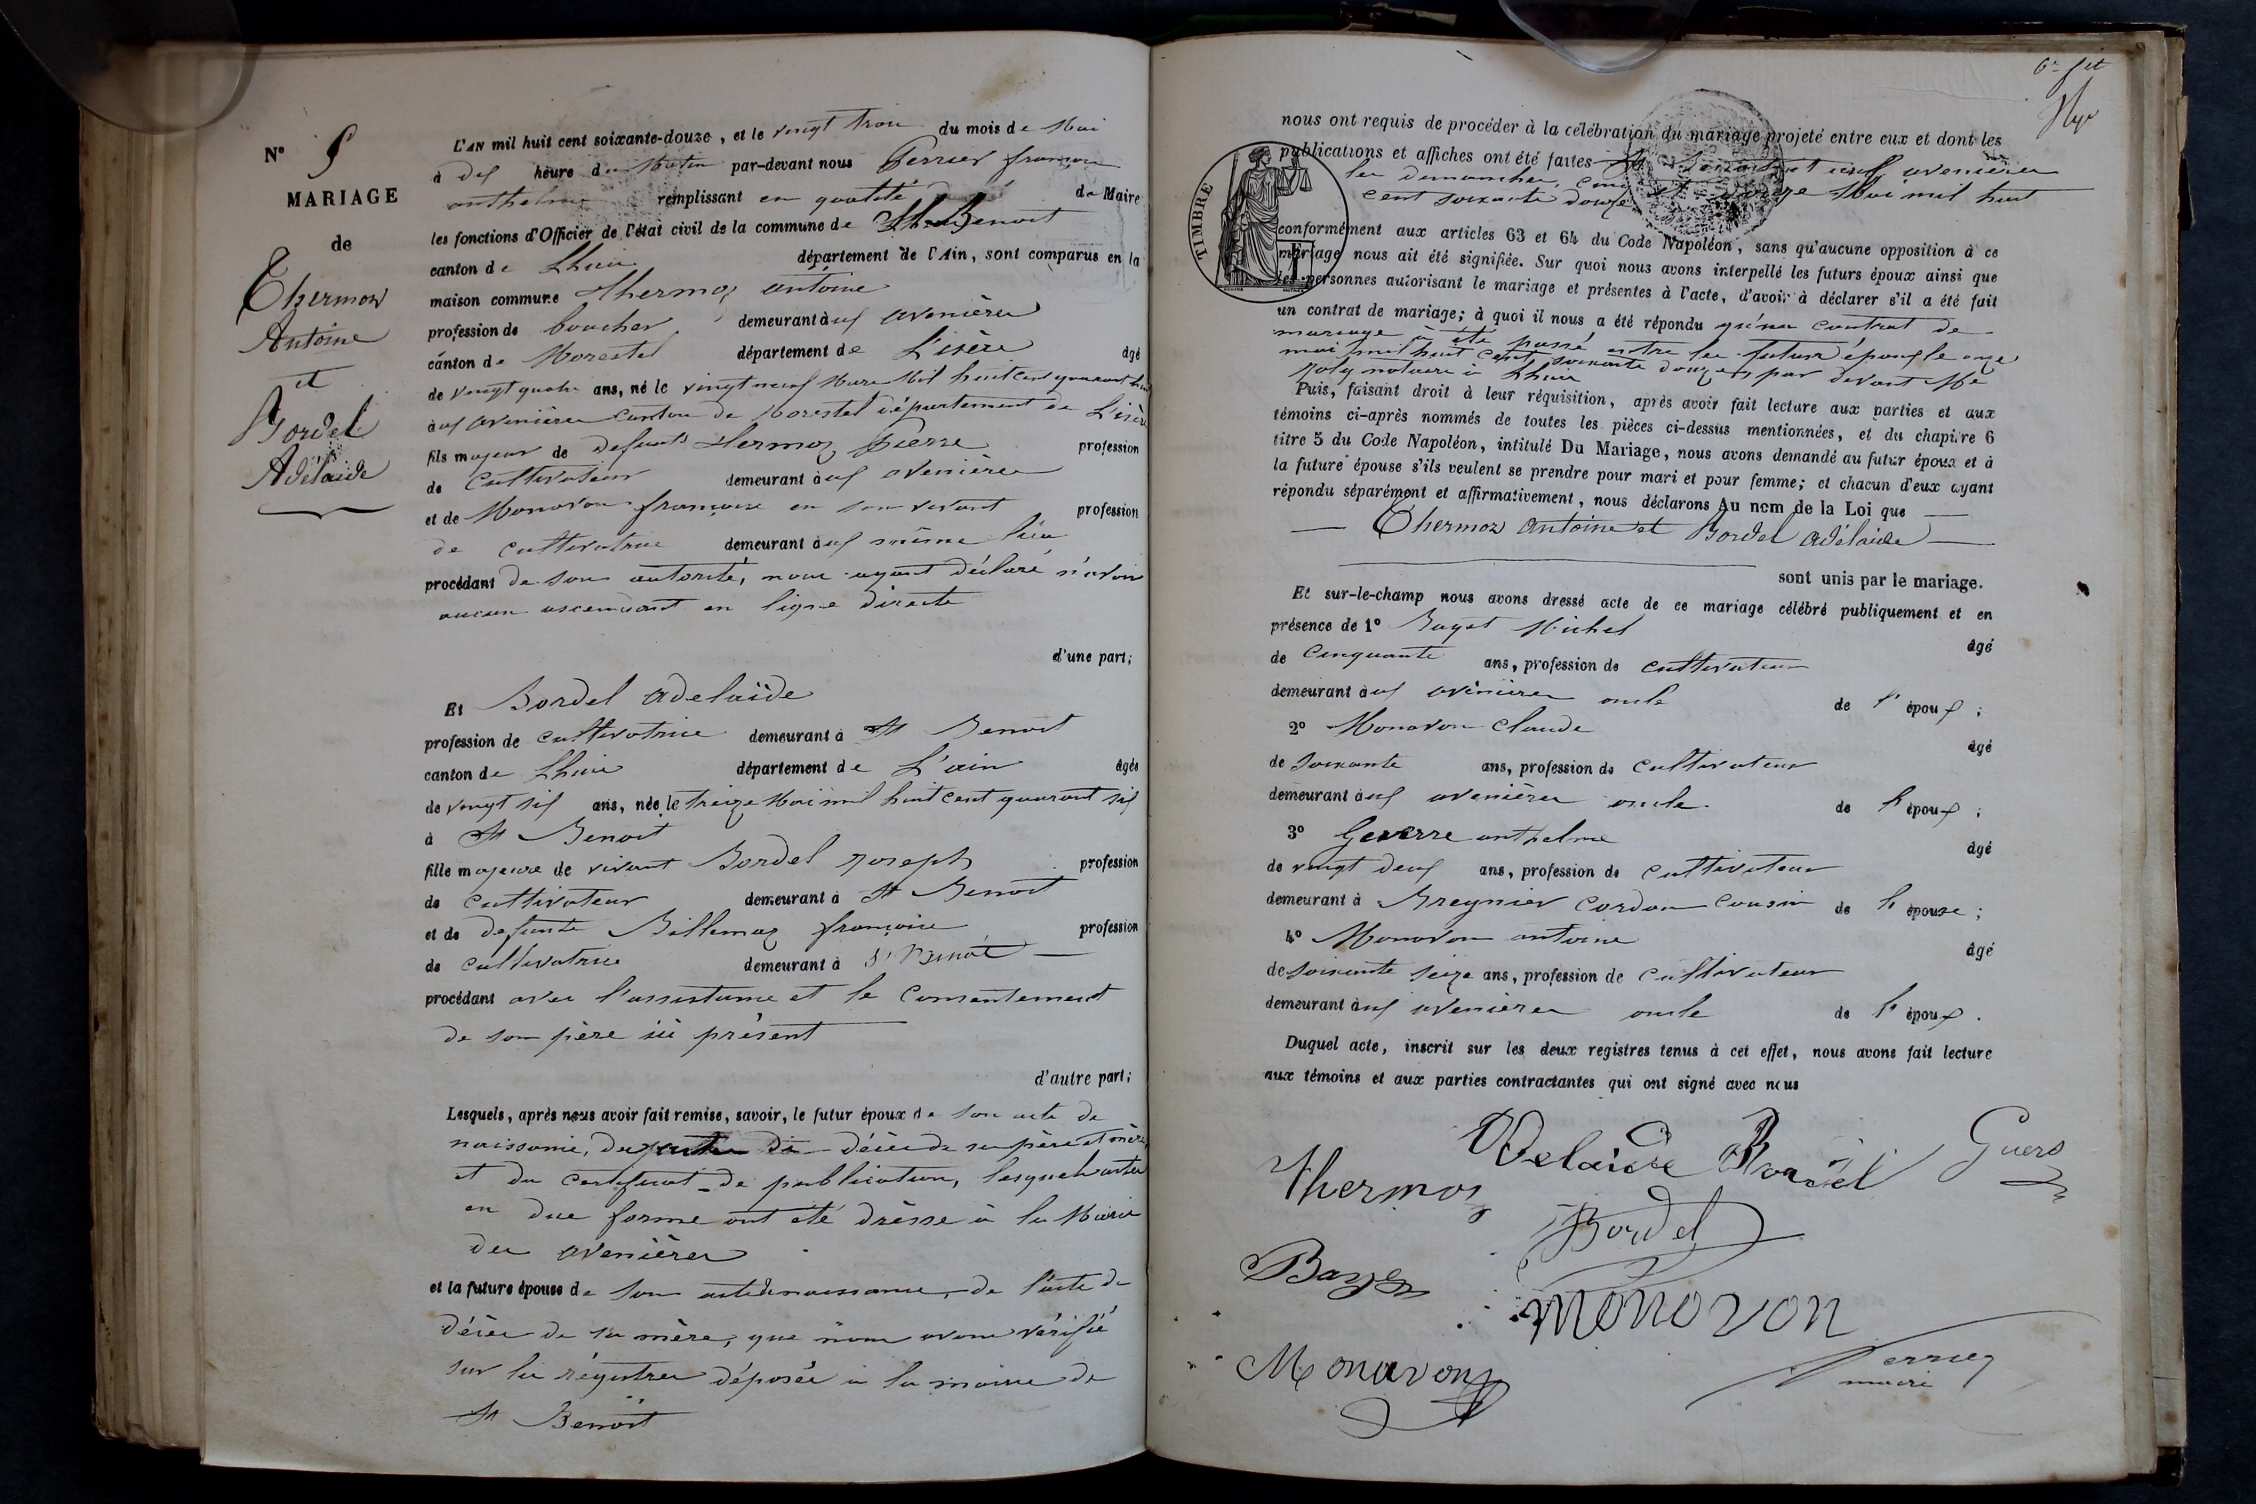 N° 5
MARIAGE
de
Thermoz
Antoine
et
Bordel
Adélaide
L'AN mil huit cent soixante-douze, et le vingt trois du mois de Mai
à dix heure du Matin par-devant nous Perrier françois
anthelme remplissant en qualité de Maire
les fonctions d'Officier de l'état civil de la commune de St Benoit
canton de Lhuis département de l'Ain, sont comparus en la
maison commune Thermoz antoine
profession de boucher demeurant à ux avenières
canton de Morestel département de L'isère âgé
de vingt quatre ans, né le vingt neuf Mars Mil huit cent quarant huit
à ux avenières canton de Morestel département de L'isère
fils majeur de defunts thermoz Pierre profession
de Cultivateur demeurant à ux avenières
et de Monavon françoise en son vivant profession
de cultivatrice demeurant à ux même lieu
procédant de son autorité, nous ayant déclaré n'avoir
aucun ascendant en ligne directe
d'une part;
Et Bordel adelaïde
profession de cultivatrice demeurant à St Benoit
canton de Lhuis département de L'ain âgée
de vingt six ans, née le treize Mai mil huit cent quarant six
à St Benoit
fille majeure de vivant Bordel Joseph profession
de cultivateur demeurant à St Benoit
et de defunte Billemaz françoise profession
de cultivatrice demeurant à St Benoit
procédant avec l'assistance et le consentement
de son père ici présent
d'autre part;
Lesquels, après nous avoir fait remise, savoir, le futur époux de son acte de
naissance, de décès de ses père et mère
et du certificat de publication, lesquels actes
en due forme ont été drèssé à la Mairie
des avenières
et la future épouse de son acte de naissance, de l'acte de
décès de sa mère, que nous avons vérifié
sur les régistres déposés à la mairie de
St Benoit
nous ont requis de procéder à la célébration du mariage projeté entre eux et dont les
publications et affiches ont été faites à St Benoit et aux avenières
les dimanches, cinq et douze Mai mil huit
cent soixante douze
TIMBRE
conformément aux articles 63 et 64 du Code Napoléon, sans qu'aucune opposition à ce
mariage nous ait été signifiée. Sur quoi nous avons interpellé les futurs époux ainsi que
les personnes autorisant le mariage et présentes à l'acte, d'avoir à déclarer s'il a été fait
un contrat de mariage; à quoi il nous a été répondu qu'un contrat de
mariage à été passé entre les futurs époux le onze
mai mil huit cent soixante douze par devant Me
notaire à Lhuis
Puis, faisant droit à leur réquisition, après avoir fait lecture aux parties et aux
témoins ci-après nommés de toutes les pièces ci-dessus mentionnées, et du chapitre 6
titre 5 du Code Napoléon, intitulé Du Mariage, nous avons demandé au futur époux et à
la future épouse s'ils veulent se prendre pour mari et pour femme; et chacun d'eux ayant
répondu séparément et affirmativement, nous déclarons Au nom de la Loi que
Thermoz antoine et Bordel adélaide
sont unis par le mariage.
Et sur-le-champ nous avons dressé acte de ce mariage célébré publiquement et en
présence de 1° Michel
âgé
de Cinquante ans, profession de cultivateur
demeurant à ux avenières oncle de l' époux;
2° Monavon Claude
âgé
de soixante ans, profession de cultivateur
demeurant à ux avenières oncle de l' époux;
3° anthelme
âgé
de vingt deux ans, profession de cultivateur
demeurant à Bregnier Cordon cousin de l' épouse;
4° Monavon antoine
âgé
de soixante seize ans, profession de cultivateur
demeurant à ux avenières oncle de l' époux.
Duquel acte, inscrit sur les deux registres tenus à cet effet, nous avons fait lecture
aux témoins et aux parties contractantes qui ont signé avec nous
Adelaide Bordel
Guers
Thermoz
Bordel
monovon
Monavon
Perrier
maire